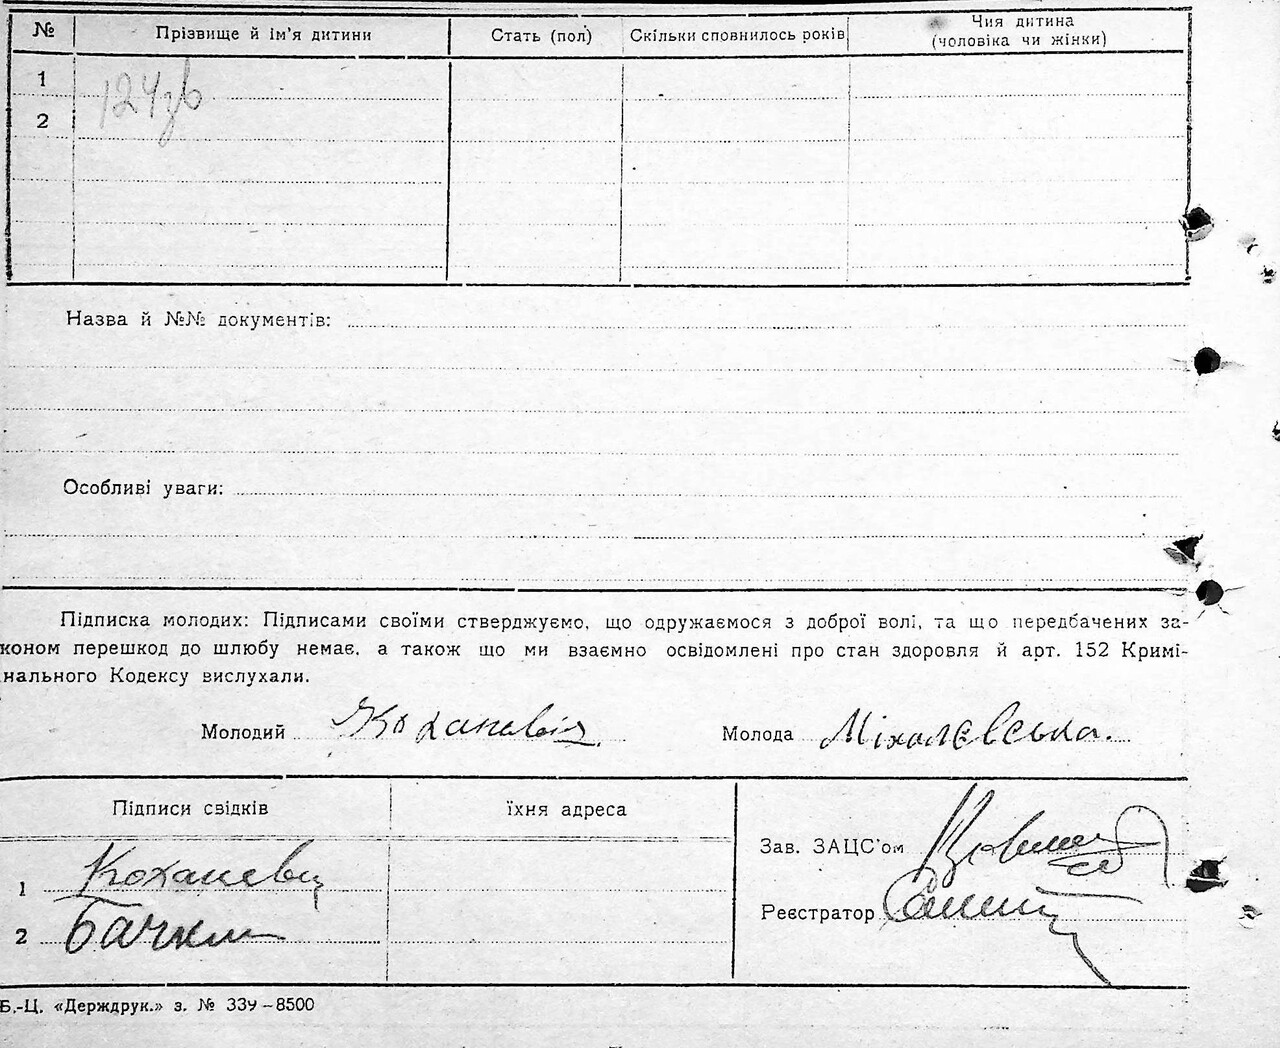 № Прізвище й ім'я дитини Стать (пол) Скільки сповнилось років Чия дитина
(чоловіка чи жінки)
1
2
Назва й №№ документів:
Особливі уваги:
Підписка молодих: Підписами своїми стверджуємо, що одружаємося з доброї волі, та що передбачених за-
коном перешкод до шлюбу немає, а також що ми взаємно освідомлені про стан здоровля й арт. 152 Кримі-
нального Кодексу вислухали.
Молодий Молода Міхалєвська.
Підписи свідків їхня адреса
Зав. ЗАЦС'ом
1 Коханевич
Реєстратор
2
Б.-Ц. «Держдрук.» з. № 339–8500